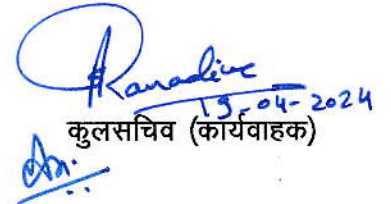 Ranadive
19-04-2024
कुलसचिव (कार्यवाहक)